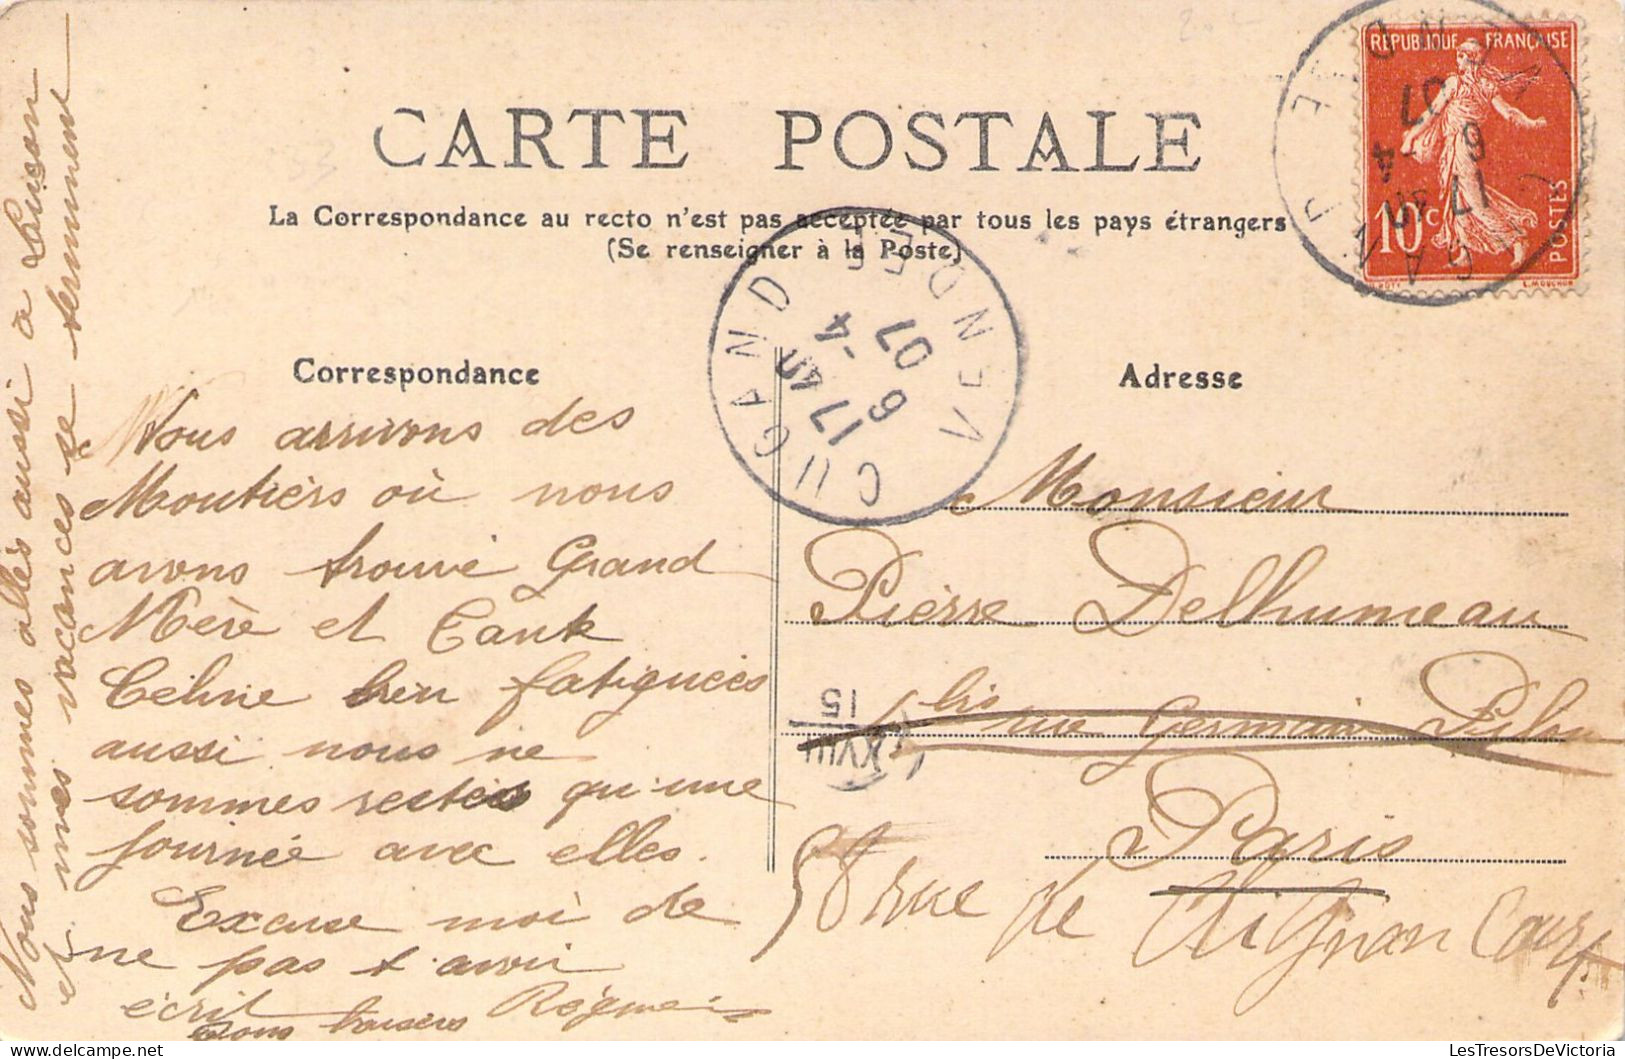 CARTE POSTALE
La Correspondance au recto n'est pas acceptée par tous les pays étrangers
(Se renseigner à la Poste)
REPUBLIQUE FRANÇAISE
10c
POSTES
O. ROTY
L. MOUCHON
CUGAND
VENDEE
17 40
6 -4
07
CUGAND
VENDEE
17 40
6 -4
07
Correspondance
Nous arrivons des
Moutiers où nous
avons trouvé Grand
Mère et Tante
Céline bien fatiguées
aussi nous ne
sommes restées qu'une
journée avec elles.
Excuse moi de
ne pas t'avoir
écrit
Bons baisers
Nous sommes allés aussi à
et mes vacances se terminent
Adresse
Monsieur
Pierre Delhumeau
bis rue Germain Pilon
Paris
58 rue de Clignancourt
XVIII
15
LesTresorsDeVictoria